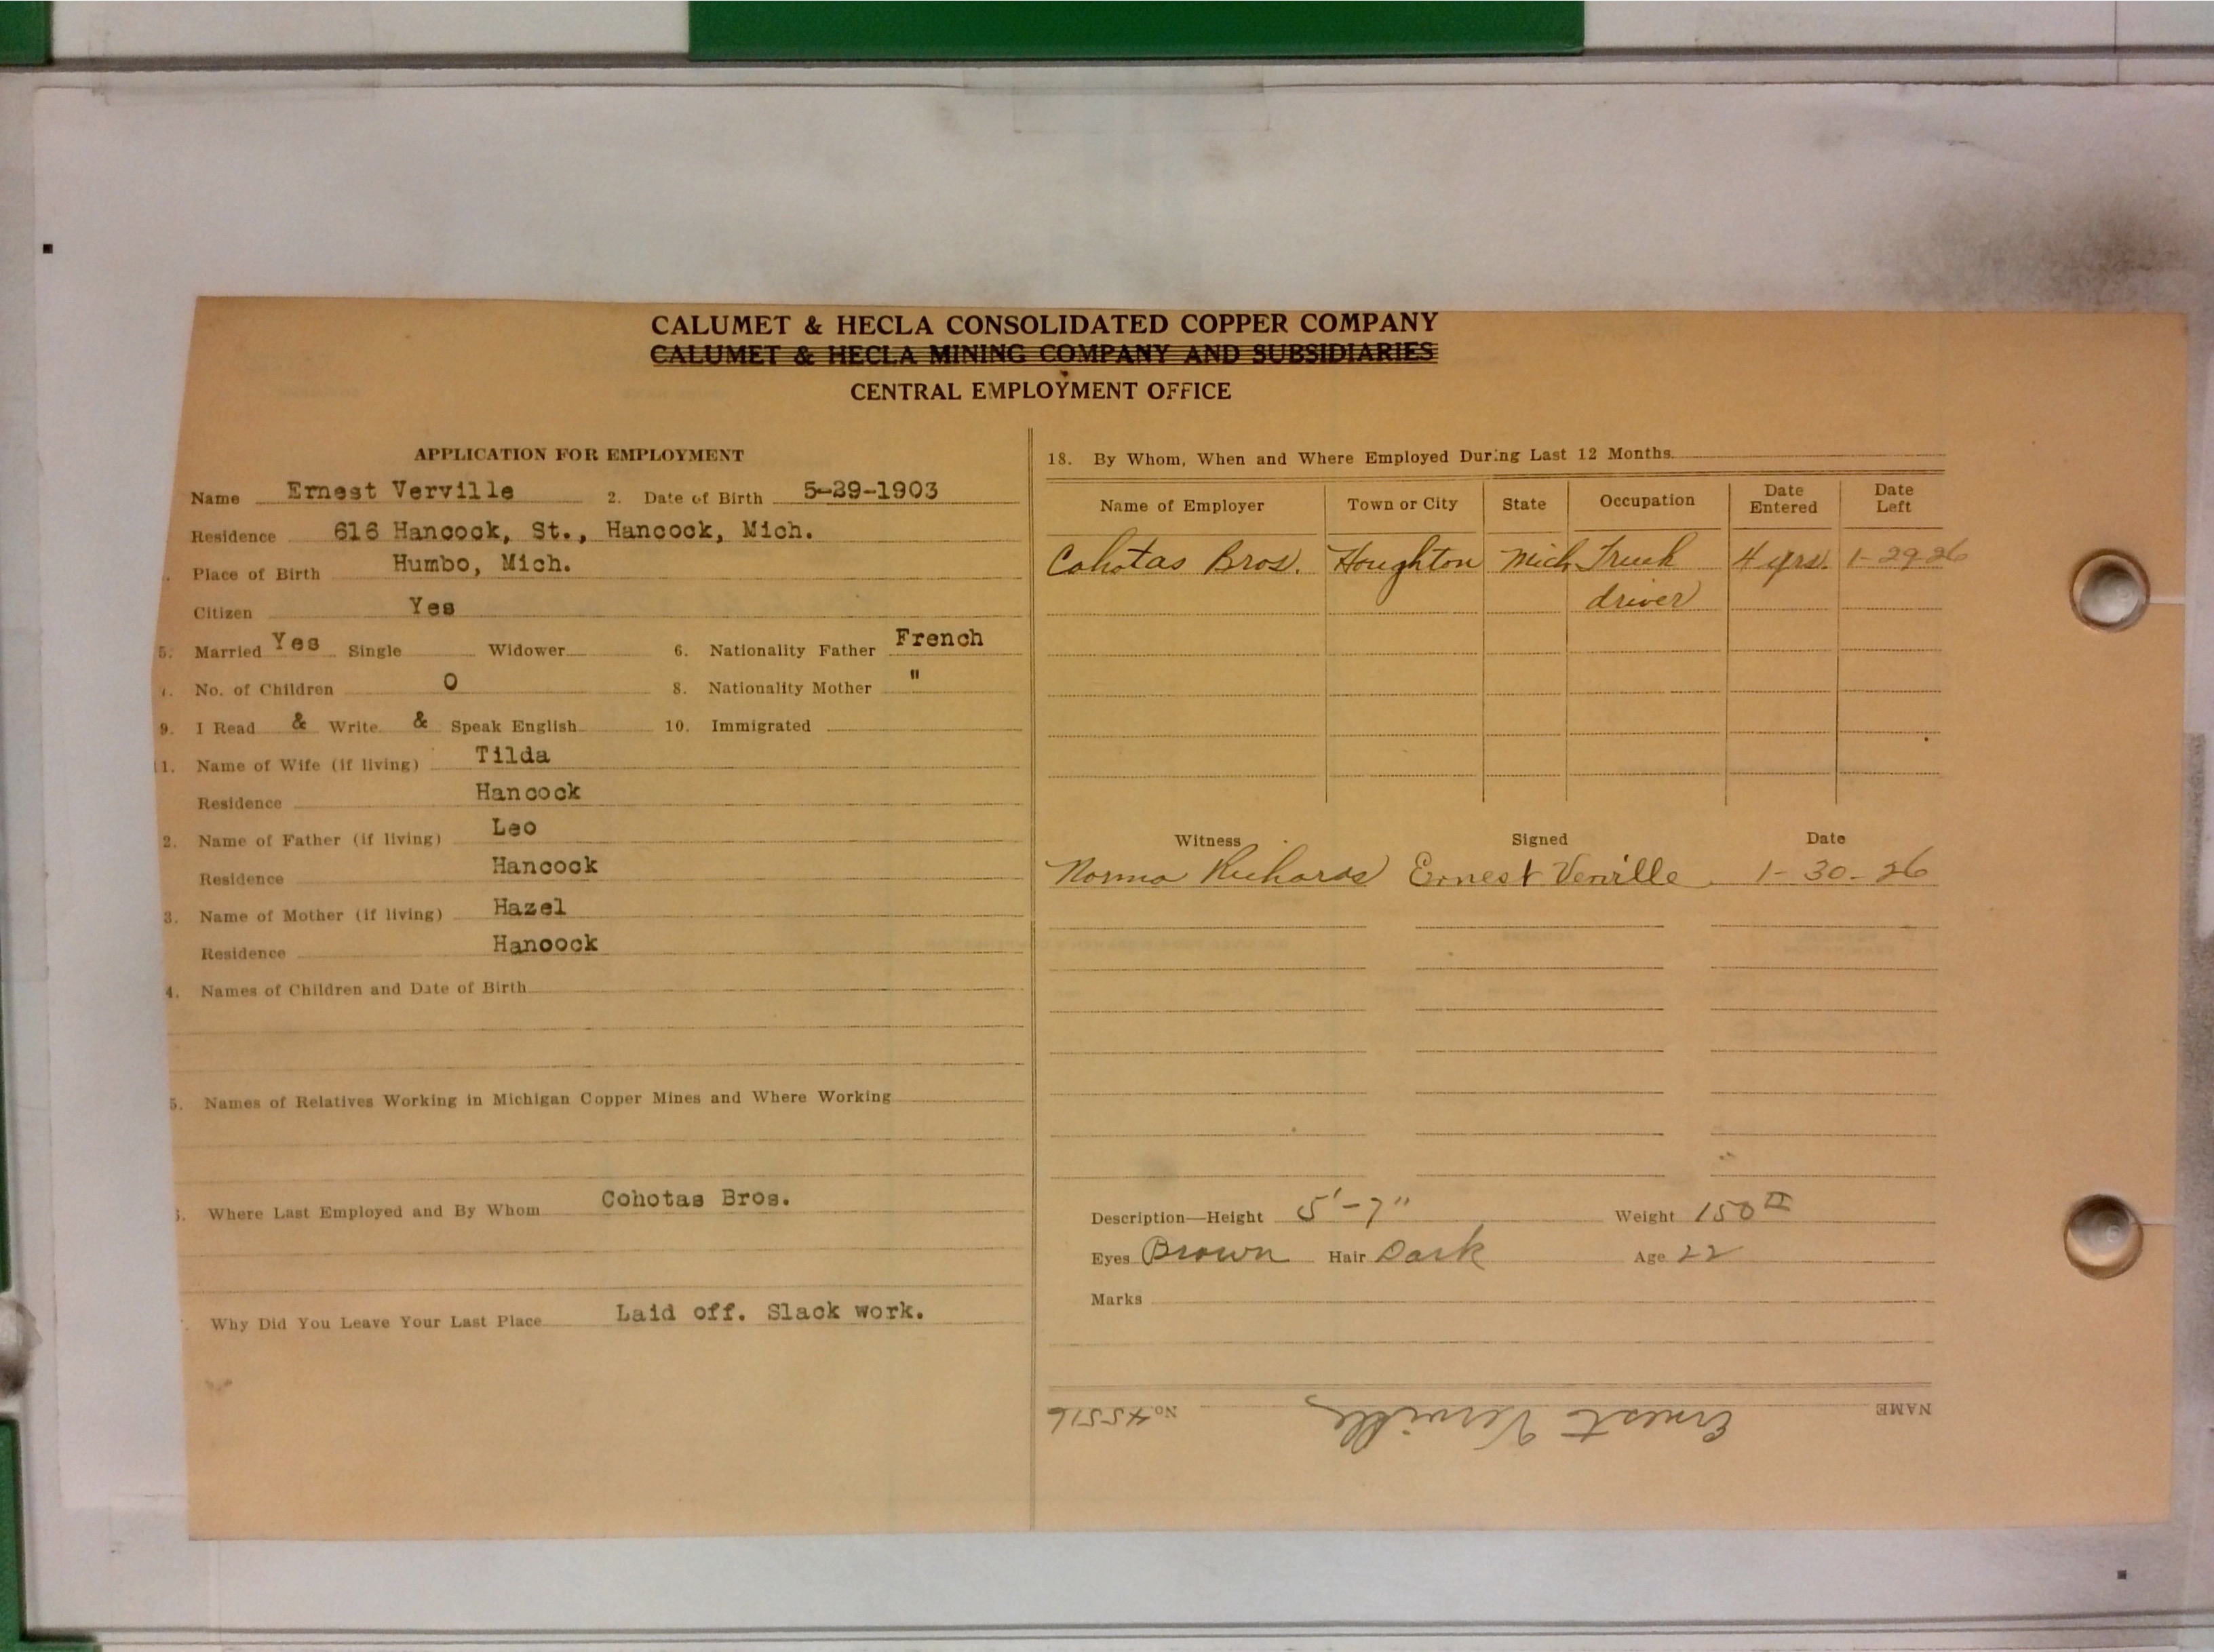 CALUMET & HECLA CONSOLIDATED COPPER COMPANY
CALUMET & HECLA MINING COMPANY AND SUBSIDIARIES
CENTRAL EMPLOYMENT OFFICE
APPLICATION FOR EMPLOYMENT
Name Ernest Verville 2. Date of Birth 5-29-1903
Residence 616 Hancock, St., Hancock, Mich.
Place of Birth Humbo, Mich.
Citizen Yes
5. Married Yes Single Widower 6. Nationality Father French
No. of Children 0 8. Nationality Mother "
9. I Read & Write & Speak English 10. Immigrated
11. Name of Wife (if living) Tilda
Residence Hancock
2. Name of Father (if living) Leo
Residence Hancock
3. Name of Mother (if living) Hazel
Residence Hancock
4. Names of Children and Date of Birth
5. Names of Relatives Working in Michigan Copper Mines and Where Working
Where Last Employed and By Whom Cohotas Bros.
Why Did You Leave Your Last Place Laid off. Slack work.
18. By Whom, When and Where Employed During Last 12 Months
Name of Employer Town or City State Occupation Date Entered Date Left
Cohotas Bros. Houghton Mich Truck 4 yrs. 1-29-26
driver
Witness Signed Date
Norma Richards Ernest Verville 1-30-26
Description—Height 5'-7" Weight 150
Eyes Brown Hair Dark Age 22
Marks
NAME Ernest Verville No. 45516